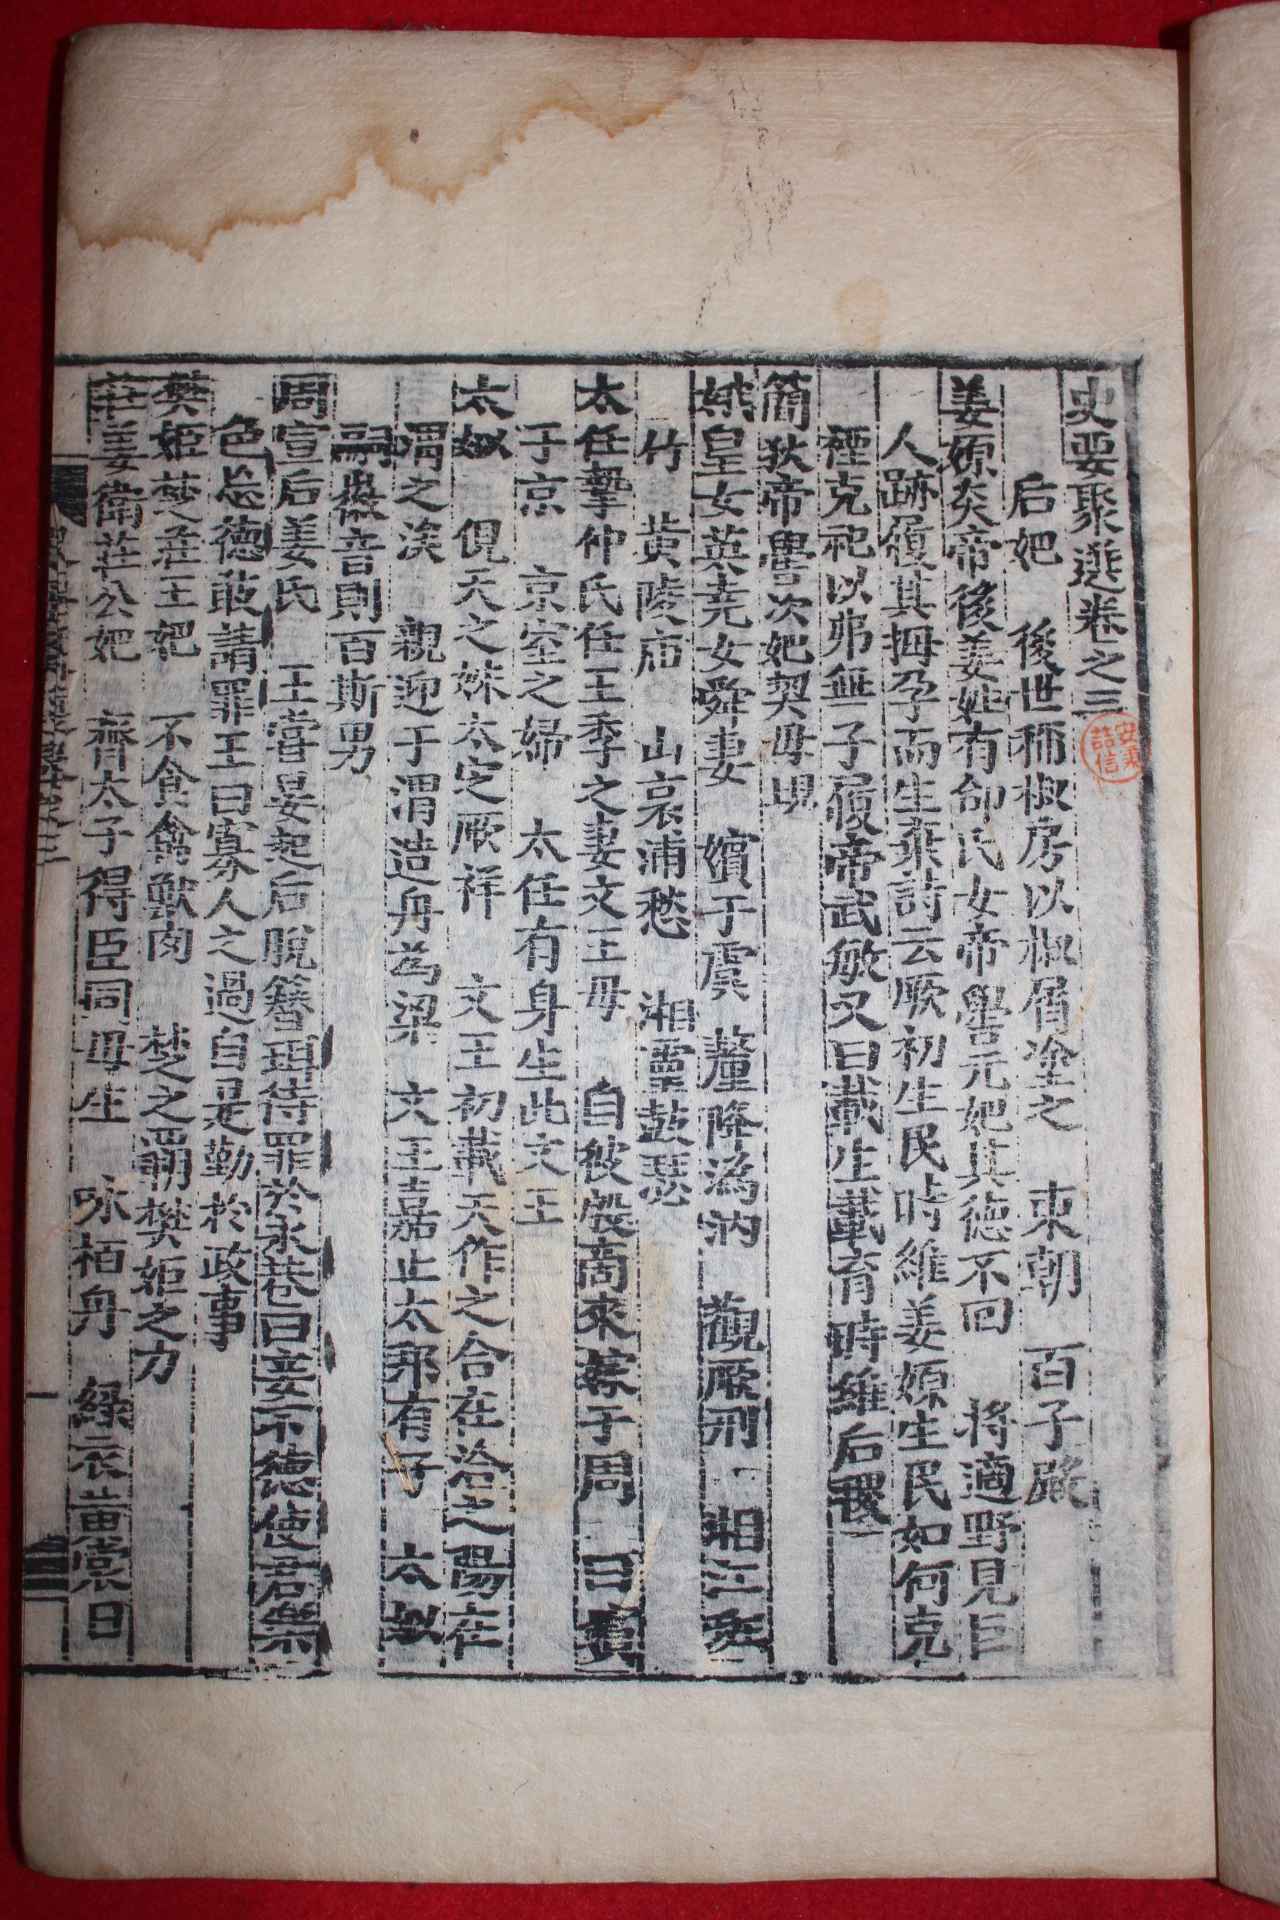 史要聚選卷之三
后妃 後世称椒房以椒屑塗之 東朝 百子殿
姜嫄炎帝後姜姓有邰氏女帝嚳元妃其德不回 將適野見巨
人跡履其拇孕而生棄詩云厥初生民時維姜嫄生民如何克
禋克祀以弗無子履帝武敏又曰載生載育時維后稷
簡狄帝嚳次妃契母
娥皇女英堯女舜妻 嬪于虞 釐降溈汭 觀厥刑 湘江斑
竹 黃陵庙 山哀浦愁 湘靈鼓瑟
太任摯仲氏任王季之妻文王母 自彼殷商來嫁于周 曰嬪
于京 京室之婦 太任有身生此文王
太姒 俔天之妹太定厥祥 文王初載天作之合在洽之陽在
渭之涘 親迎于渭造舟為梁 文王嘉止太邦有子 太姒
嗣徽音則百斯男
周宣后姜氏 王嘗晏起后脫簪珥待罪於永巷曰妾不德使君樂
色忘德敢請罪王曰寡人之過自是勤於政事
樊姬楚庄王妃 不食禽獸肉 楚之霸樊姬之力
莊姜衛莊公妃 齊太子得臣同母生 咏栢舟 綠衣黃裳曰
一